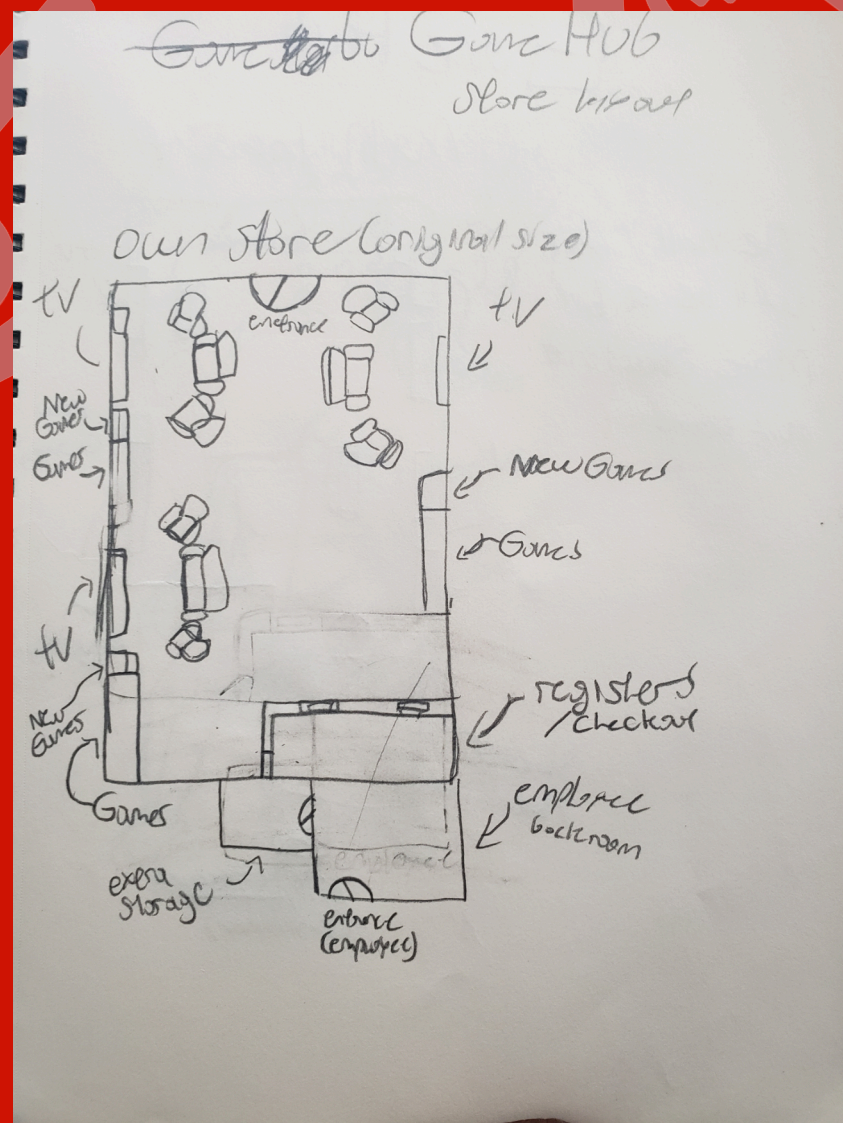 Game Hub
Store layout
own store (original size)
tv
entrance
tv
New
Games
Games
New Games
Games
tv
New
Games
registers
/checkout
Games
employee
backroom
employee
extra
storage
entrance
(employee)